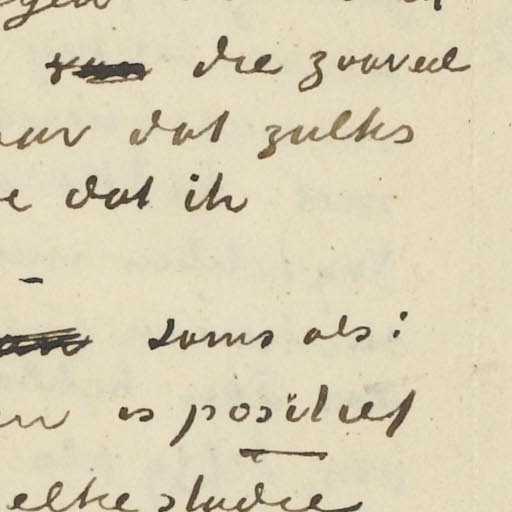 die zooveel
dat zulks
dat ik
soms als:
is positief
elke studie